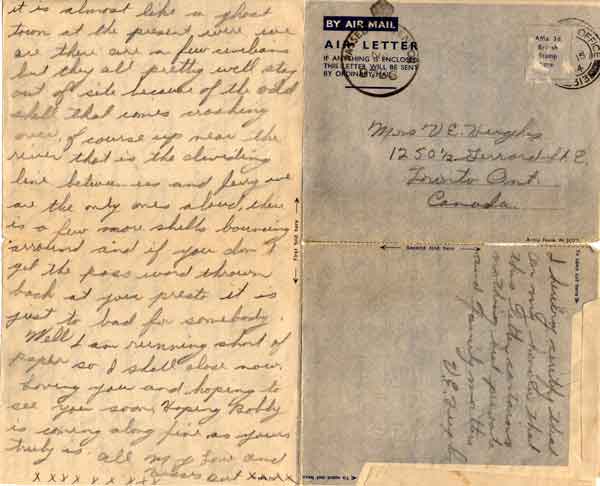 it is almost like a ghost
town at the present were we
are there are a few civilians
but they all pretty well stay
out of site because of the odd
shell that comes crashing
over, of course up near the
river that is the dividing
line between us and Jerry we
are the only ones aloud, there
is a few more shells bouncing
arround and if you don't
get the pass word thrown
back at you presto it is
just to bad for somebody.
Well I am running short of
paper so I shall close now.
Loving you and hoping to
see you soon, Hoping Bobby
is coming along fine as yours
truly is. All my Love and
Kisses
x x x x x x x
BY AIR MAIL
AIR LETTER
IF ANYTHING IS ENCLOSED
THIS LETTER WILL BE SENT
BY ORDINARY MAIL.
Affix 3d
British
Stamp
here
Mrs V. E.
1250½ Gerrard St E.
Toronto Ont.
Canada
Second fold here
First fold here
To open cut here
I hereby certify that
on my honor that
this letter contains
nothing but private
and family matters
V. E.
To open cut here